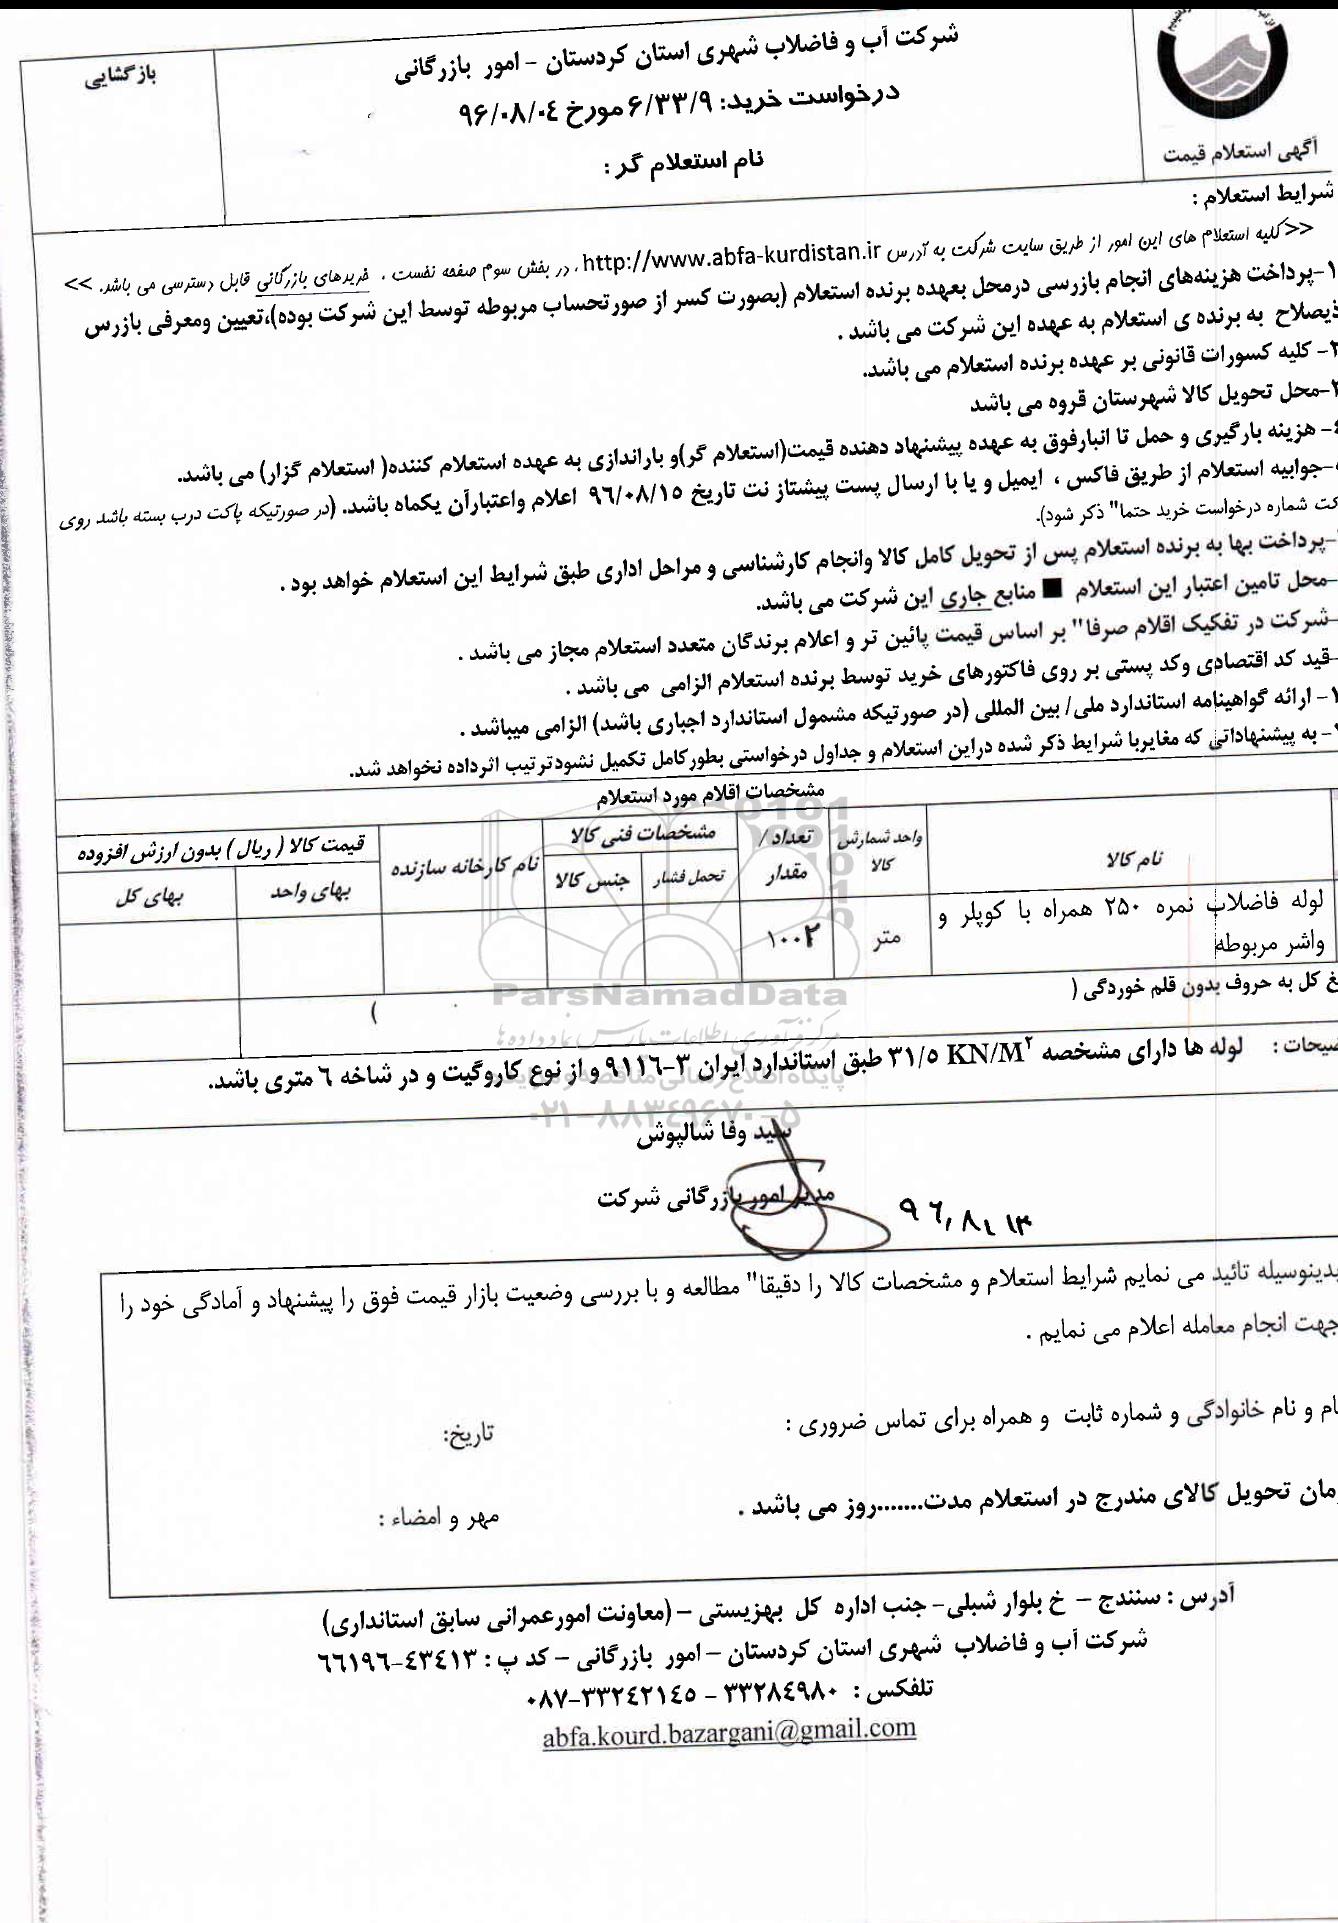 شرکت آب و فاضلاب شهری استان کردستان - امور بازرگانی
درخواست خرید: ۶/۳۳/۹ مورخ ۹۶/۰۸/۰۴
نام استعلام گر :
بازگشایی
آگهی استعلام قیمت
شرایط استعلام :
<<کلیه استعلام های این امور از طریق سایت شرکت به آدرس http://www.abfa-kurdistan.ir ، در بخش سوم صفحه نخست ، خریدهای بازرگانی قابل دسترسی می باشد. >>
۱-پرداخت هزینه‌های انجام بازرسی درمحل بعهده برنده استعلام (بصورت کسر از صورتحساب مربوطه توسط این شرکت بوده)،تعیین ومعرفی بازرس
ذیصلاح به برنده ی استعلام به عهده این شرکت می باشد .
۲- کلیه کسورات قانونی بر عهده برنده استعلام می باشد.
-محل تحویل کالا شهرستان قروه می باشد
٤- هزینه بارگیری و حمل تا انبارفوق به عهده پیشنهاد دهنده قیمت(استعلام گر)و باراندازی به عهده استعلام کننده( استعلام گزار) می باشد.
-جوابیه استعلام از طریق فاکس ، ایمیل و یا با ارسال پست پیشتاز نت تاریخ ۹٦/۰۸/۱٥ اعلام واعتبارآن یکماه باشد. (در صورتیکه پاکت درب بسته باشد روی
کت شماره درخواست خرید حتما" ذکر شود).
-پرداخت بها به برنده استعلام پس از تحویل کامل کالا وانجام کارشناسی و مراحل اداری طبق شرایط این استعلام خواهد بود .
-محل تامین اعتبار این استعلام ■ منابع جاری این شرکت می باشد.
-شرکت در تفکیک اقلام صرفا" بر اساس قیمت پائین تر و اعلام برندگان متعدد استعلام مجاز می باشد .
-قید کد اقتصادی وکد پستی بر روی فاکتورهای خرید توسط برنده استعلام الزامی می باشد .
- ارائه گواهینامه استاندارد ملی/ بین المللی (در صورتیکه مشمول استاندارد اجباری باشد) الزامی میباشد .
- به پیشنهاداتی که مغایربا شرایط ذکر شده دراین استعلام و جداول درخواستی بطورکامل تکمیل نشودترتیب اثرداده نخواهد شد.
مشخصات اقلام مورد استعلام
نام کالا
واحد شمارش کالا
تعداد / مقدار
مشخصات فنی کالا
تحمل فشار
جنس کالا
نام کارخانه سازنده
قیمت کالا ( ریال ) بدون ارزش افزوده
بهای واحد
بهای کل
لوله فاضلاب نمره ۲۵۰ همراه با کوپلر و
واشر مربوطه
متر
۱۰۰۲
غ کل به حروف بدون قلم خوردگی ( )
ضیحات : لوله ها دارای مشخصه KN/M² ۳۱/٥ طبق استاندارد ایران ۳-۹۱۱٦ و از نوع کاروگیت و در شاخه ٦ متری باشد.
ParsNamadData
مرکز فرآوری اطلاعات پارس نماد داده ها
۰۲۱-۸۸۳۴۹۶۷۰-۵
سید وفا شالپوش
مدیر امور بازرگانی شرکت
۹۶/۸/۱۳
بدینوسیله تائید می نمایم شرایط استعلام و مشخصات کالا را دقیقا" مطالعه و با بررسی وضعیت بازار قیمت فوق را پیشنهاد و آمادگی خود را
جهت انجام معامله اعلام می نمایم .
ام و نام خانوادگی و شماره ثابت و همراه برای تماس ضروری :
تاریخ:
مان تحویل کالای مندرج در استعلام مدت.......روز می باشد .
مهر و امضاء :
آدرس : سنندج - خ بلوار شبلی- جنب اداره کل بهزیستی - (معاونت امورعمرانی سابق استانداری)
شرکت آب و فاضلاب شهری استان کردستان - امور بازرگانی - کد پ : ٤۳٤۱۳-٦٦۱۹٦
تلفکس : ۳۳۲۸٤۹۸۰ - ۳۳۲٤۲۱٤٥-۰۸۷
abfa.kourd.bazargani@gmail.com